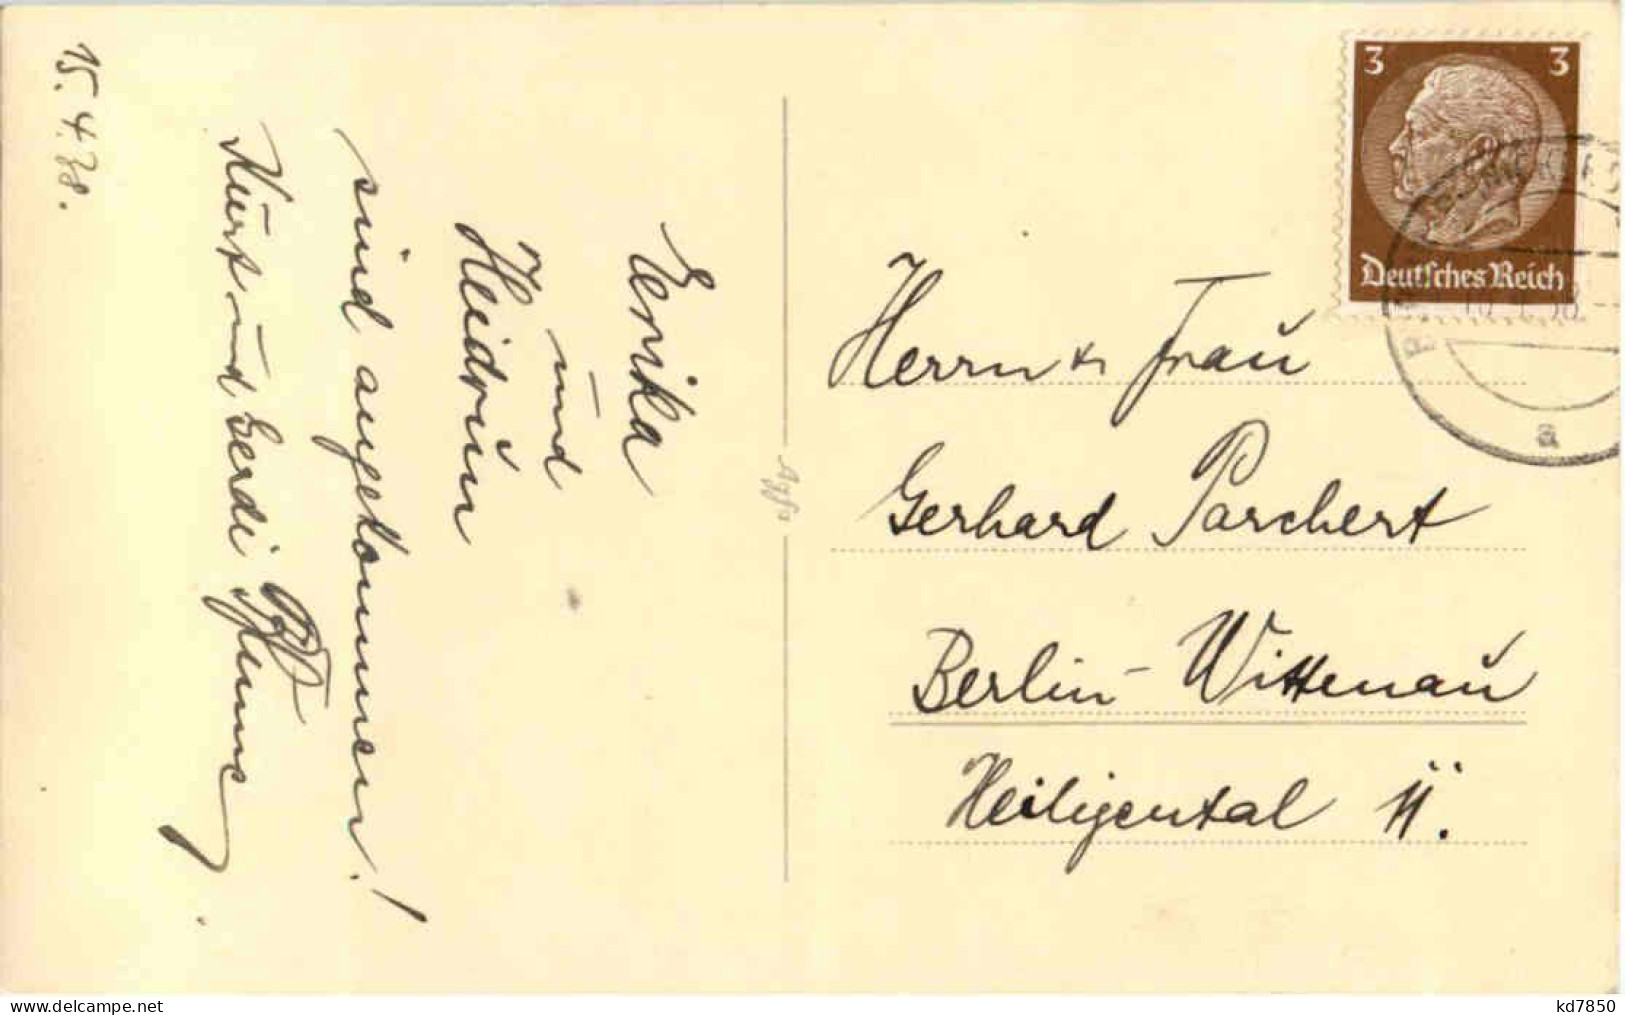 Erika
und
Heidrun
sind angekommen!
Kurt und Gerdi
15.4.38.
Agfa
3 3
Deutsches Reich
a
Herrn u Frau
Gerhard Parchert
Berlin-Wittenau
Heiligental 11.
www.delcampe.net
kd7850